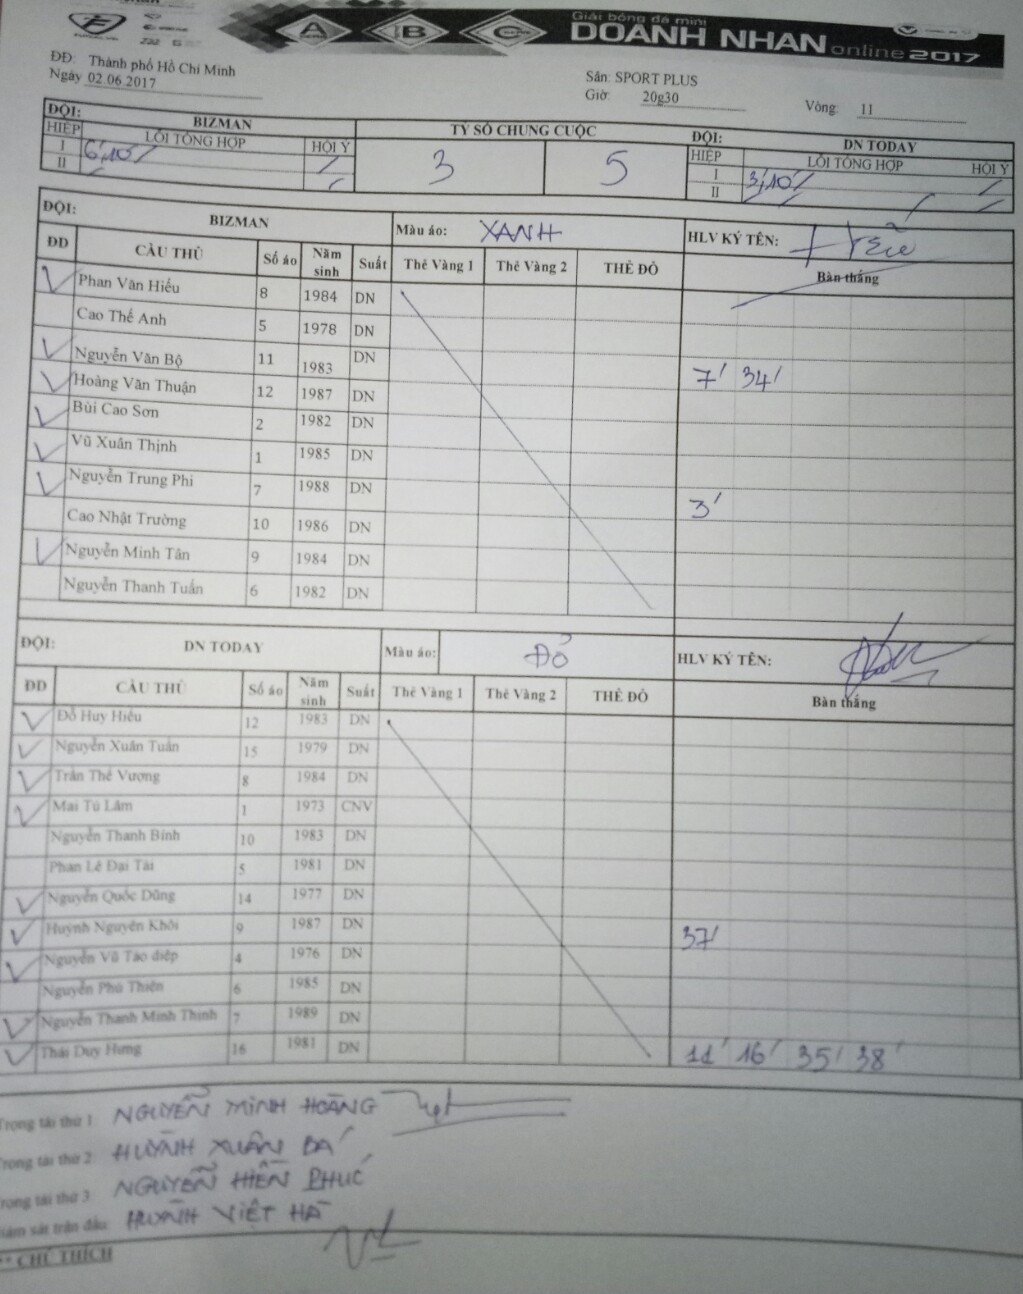 A B C
Giải bóng đá mini
DOANH NHAN online 2017
ĐĐ: Thành phố Hồ Chí Minh
Ngày 02.06.2017
Sân: SPORT PLUS
Giờ: 20g30 Vòng: 11
ĐỘI: BIZMAN TỶ SỐ CHUNG CUỘC ĐỘI: DN TODAY
HIỆP LỖI TỔNG HỢP HỘI Ý 3 5 HIỆP LỖI TỔNG HỢP HỘI Ý
I 6',10' I 3',10'
II II
ĐỘI: BIZMAN Màu áo: XANH HLV KÝ TÊN:
ĐD CẦU THỦ Số áo Năm sinh Suất Thẻ Vàng 1 Thẻ Vàng 2 THẺ ĐỎ Bàn thắng
Phan Văn Hiếu 8 1984 DN
Cao Thế Anh 5 1978 DN
Nguyễn Văn Bộ 11 1983 DN 7' 34'
Hoàng Văn Thuận 12 1987 DN
Bùi Cao Sơn 2 1982 DN
Vũ Xuân Thịnh 1 1985 DN
Nguyễn Trung Phi 7 1988 DN 3'
Cao Nhật Trường 10 1986 DN
Nguyễn Minh Tân 9 1984 DN
Nguyễn Thanh Tuấn 6 1982 DN
ĐỘI: DN TODAY Màu áo: ĐỎ HLV KÝ TÊN:
ĐD CẦU THỦ Số áo Năm sinh Suất Thẻ Vàng 1 Thẻ Vàng 2 THẺ ĐỎ Bàn thắng
Đỗ Huy Hiếu 12 1983 DN
Nguyễn Xuân Tuấn 15 1979 DN
Trần Thế Vượng 8 1984 DN
Mai Tú Lâm 1 1973 CNV
Nguyễn Thanh Bình 10 1983 DN
Phan Lê Đại Tài 5 1981 DN
Nguyễn Quốc Dũng 14 1977 DN
Huỳnh Nguyên Khôi 9 1987 DN 37'
Nguyễn Vũ Tảo điệp 4 1976 DN
Nguyễn Phú Thiện 6 1985 DN
Nguyễn Thanh Minh Thịnh 7 1989 DN
Thái Duy Hưng 16 1981 DN 11' 16' 35' 38'
Trọng tài thứ 1: NGUYỄN MINH HOÀNG
Trọng tài thứ 2: HUỲNH XUÂN BÁ
Trọng tài thứ 3: NGUYỄN HIỀN PHÚC
Giám sát trận đấu: HUỲNH VIỆT HÀ
** CHÚ THÍCH